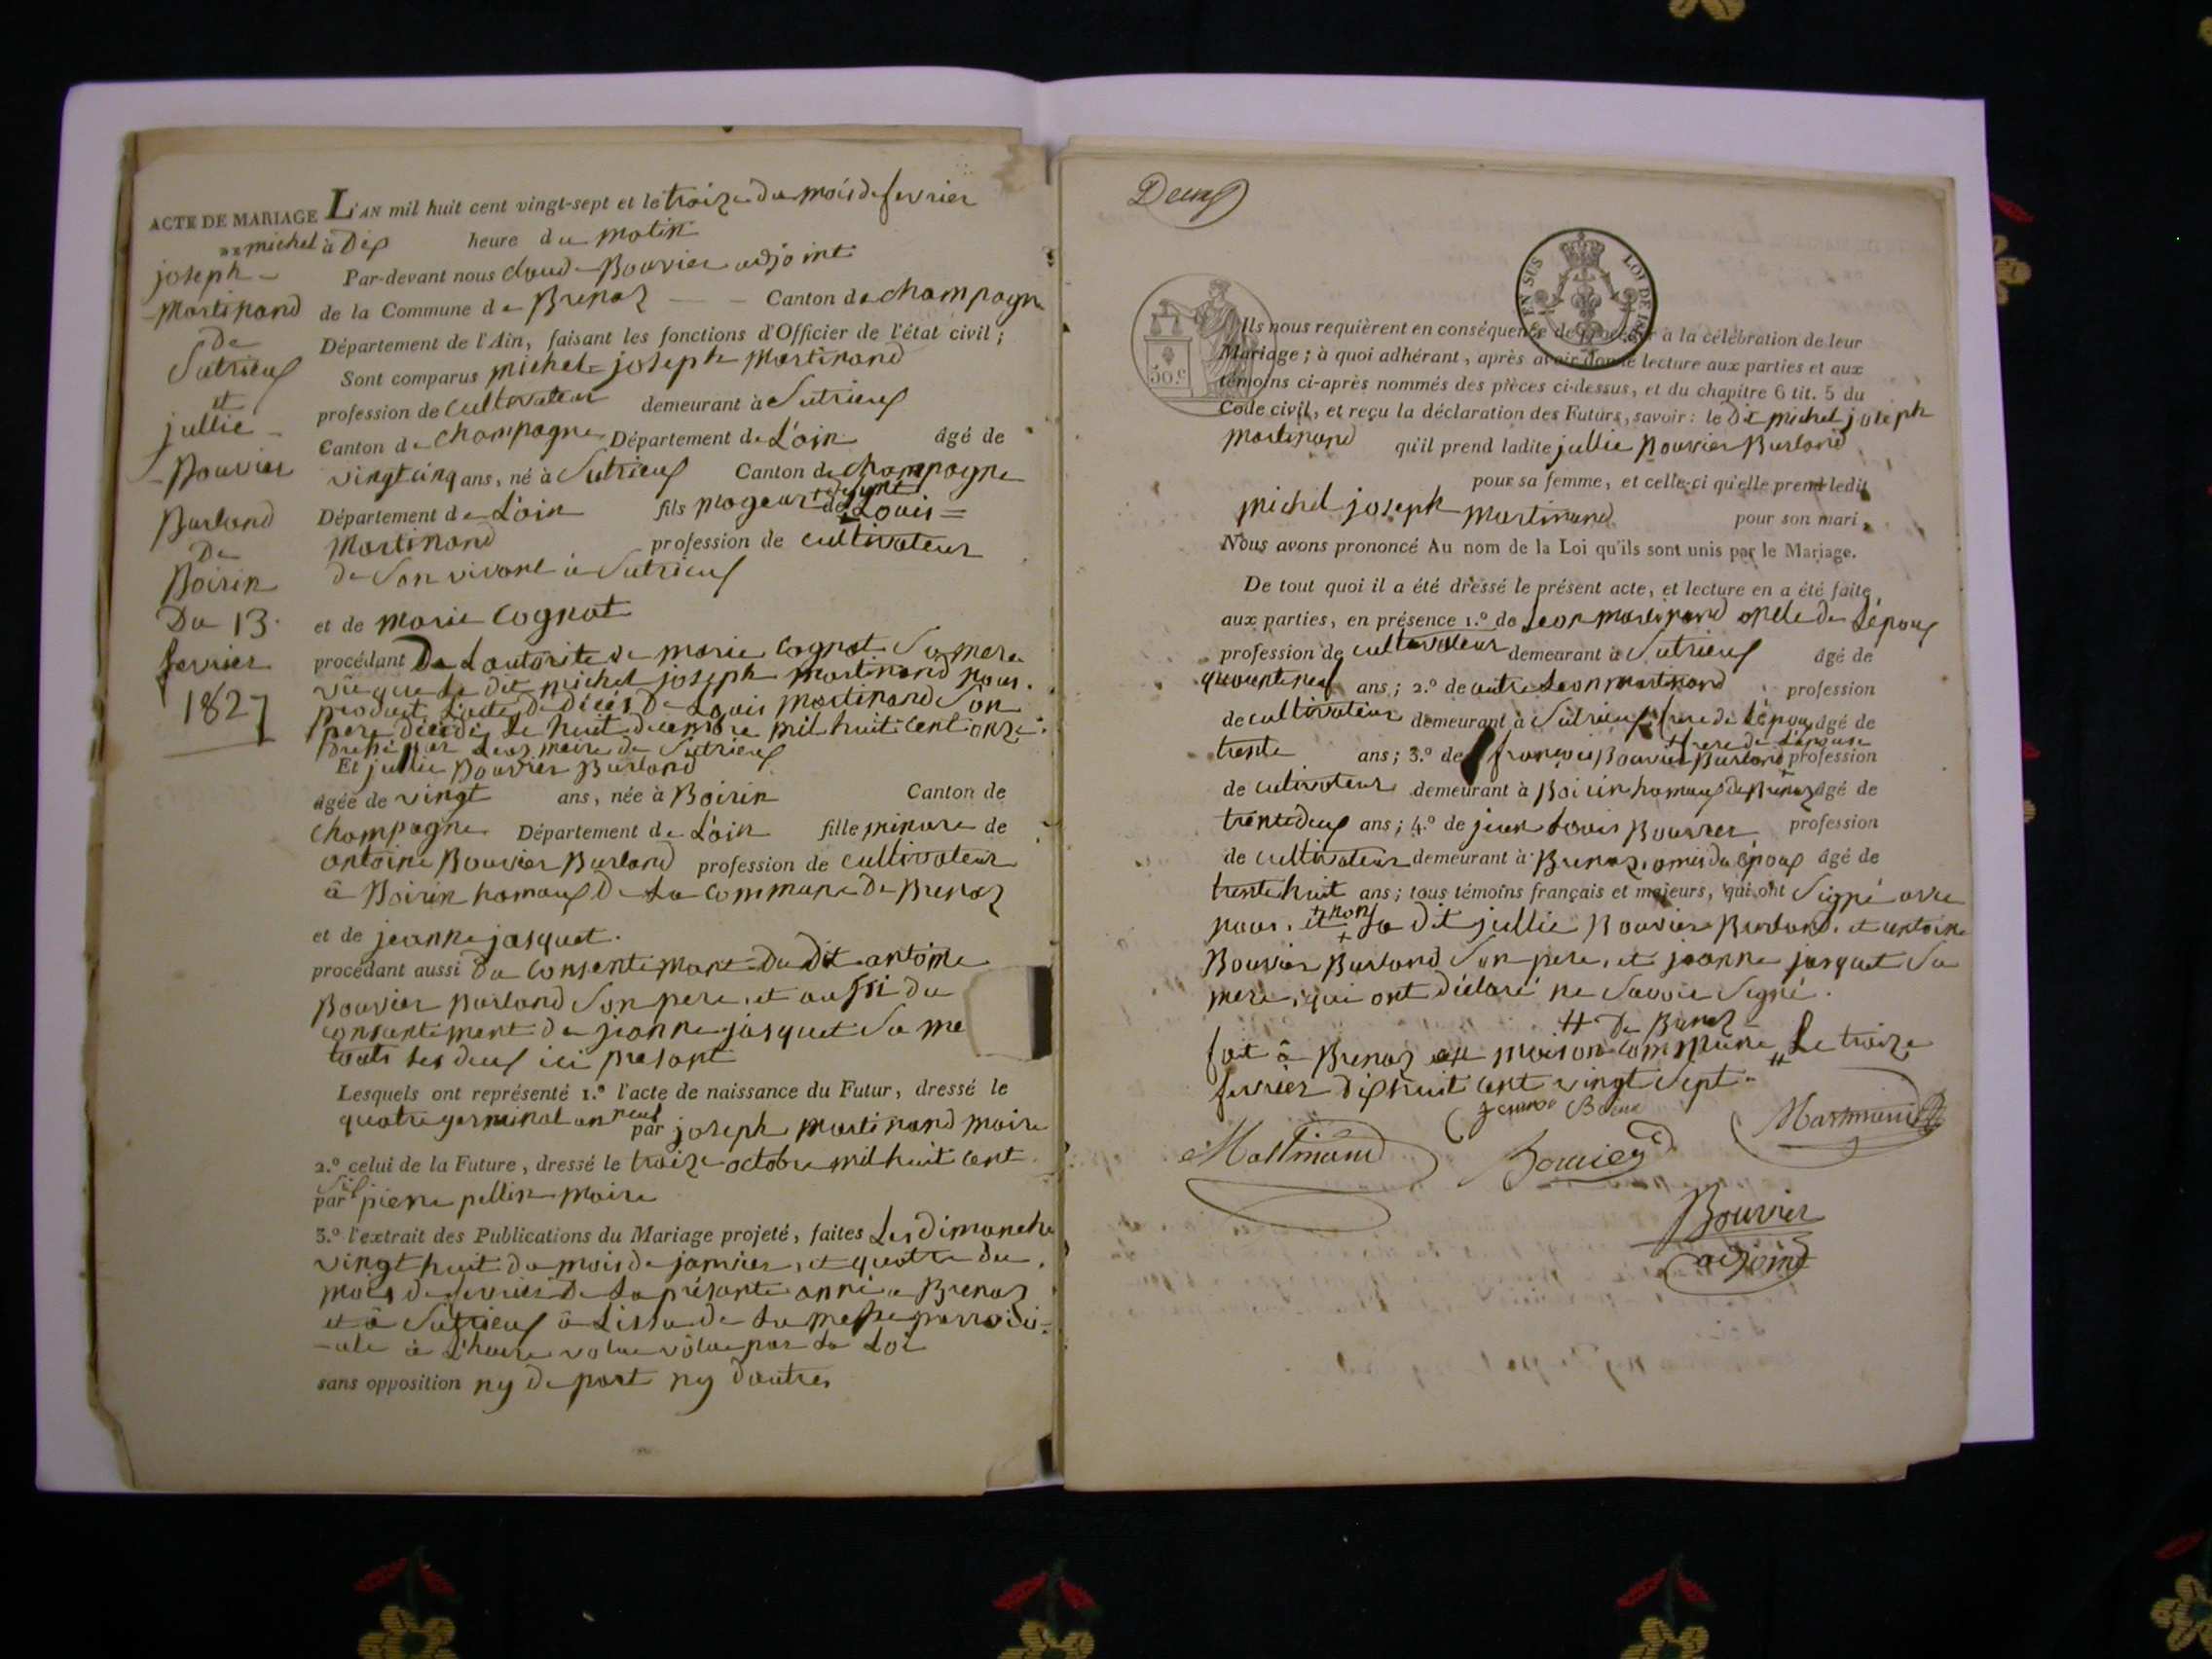 ACTE DE MARIAGE
DE michel
joseph -
Martinand
De
Sutrieux
et
jullie -
Bouvier
Burland
De
Boirin
Du 13.
fevrier
1827
L'AN mil huit cent vingt-sept et le traize du mois de fevrier
à Dix heure du matin
Par-devant nous claude Bouvier adjoint
de la Commune de Brenaz - - Canton de champagne
Département de l'Ain, faisant les fonctions d'Officier de l'état civil;
Sont comparus michel = joseph Martinand
profession de cultivateur demeurant à Sutrieux
Canton de champagne Département de L'ain âgé de
vingt cinq ans, né à Sutrieux Canton de champagne
Département de L'ain fils mageur de Louis =
Martinand profession de cultivateur
de Son vivant à Sutrieux
et de marie Cognat
procédant De Lautorité de marie Cognat Sa mere
vû que le dit michel joseph martinand nous
produit L'acte de Décès De Louis martinand Son
pere décédé Le huit decembre mil huit cent onze.
dressé par Leon maire de Sutrieux
Et jullie Bouvier Burland
âgée de vingt ans, née à Boirin Canton de
champagne Département de L'ain fille minure de
antoine Bouvier Burland profession de cultivateur
à Boirin hamaux De La Commune De Brenaz
et de jeanne jasquet.
procédant aussi Du Consentemant Du Dit antoine
Bouvier Burland Son pere, et aussi du
consantement de jeanne jasquet Sa me
touts les deux ici presant
Lesquels ont représenté 1.º l'acte de naissance du Futur, dressé le
quatre germinal an neuf par joseph martinand maire
2.º celui de la Future, dressé le traize octobre mil huit cent
Six par pierre pellin maire
3.º l'extrait des Publications du Mariage projeté, faites Les dimanche
vingt huit du mois de janvier, et quatre du
mois de fevrier De La présante anné a Brenaz
et à Sutrieux à Lissu de La messe parroisi=
-ale à L'heure volue par La Loi
sans opposition ny De part ny D'autres
Deux
EN SUS LOI DE
50.c
Ils nous requièrent en conséquence de procéder à la célébration de leur
Mariage; à quoi adhérant, après avoir donné lecture aux parties et aux
témoins ci-après nommés des pièces ci-dessus, et du chapitre 6 tit. 5 du
Code civil, et reçu la déclaration des Futurs, savoir: le Dit michel joseph
martinand qu'il prend ladite jullie Bouvier Burland
pour sa femme, et celle-ci qu'elle prend ledit
michel joseph martinand pour son mari,
Nous avons prononcé Au nom de la Loi qu'ils sont unis par le Mariage.
De tout quoi il a été dressé le présent acte, et lecture en a été faite,
aux parties, en présence 1.º de Leon martinand oncle de L'époux
profession de cultivateur demeurant à Sutrieux âgé de
quarante neuf ans; 2.º de autre Leon martinand profession
de cultivateur demeurant à Sutrieux frere de L'époux âgé de
trente ans; 3.º de françois Bouvier Burland frere de L'épouse profession
de cultivateur demeurant à Boirin hamaux de Brenaz âgé de
trente deux ans; 4.º de jean Louis Bouvier profession
de cultivateur demeurant à Brenaz, amis du époux âgé de
trente huit ans; tous témoins français et majeurs, qui ont Signé avec
nous, et non La dit jullie Bouvier Burland, et antoine
Bouvier Burland Son pere, et jeanne jasquet Sa
mere, qui ont déclaré ne Savoir Signé.
# De Brenaz
fait à Brenaz en maison commune # Le traize
fevrier dixhuit cent vingt Sept.
Martinand
Bouvier
Martinand
Bouvier
adjoint